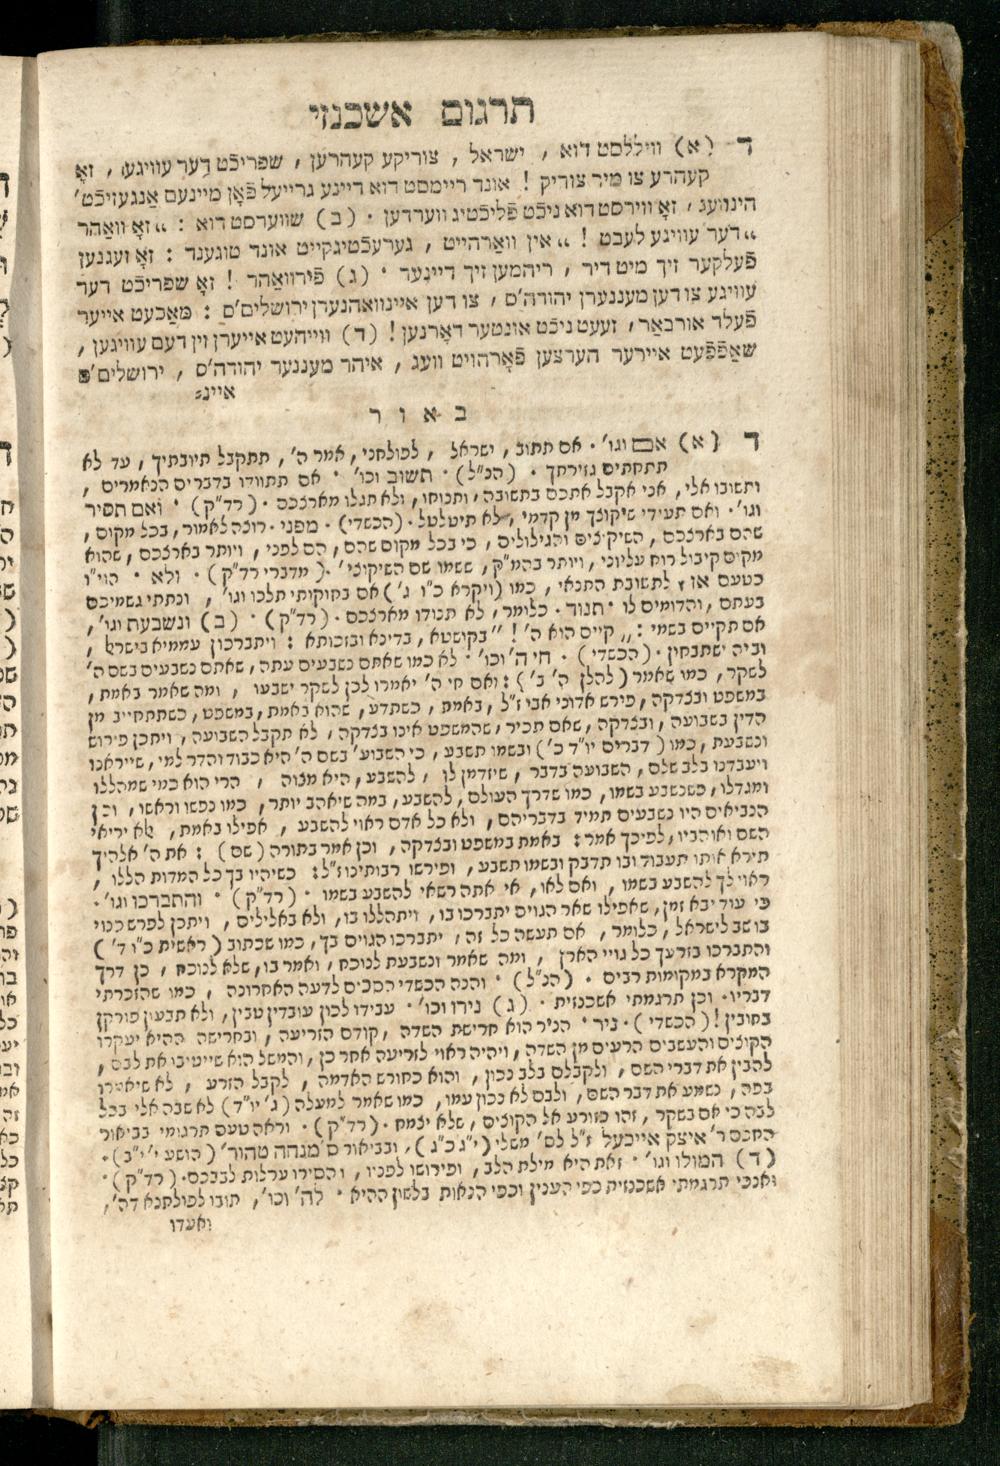 תרגום אשכנזי
ד (א) ווילללסט דוא , ישראל , צוריקע קעהרען , שפריכֿט דער עוויגע , זאָ
קעהרע צו מיר צוריק ! אונד ריימסט דוא דיינע גרייעל פֿאָן מיינעם אַנגעזיכֿט'
הינוועג , זאָ ווירסט דוא ניכֿט פֿליכֿטיג ווערדען . (ב) שווערסט דוא : ,,זאָ וואַהר
,,דער עוויגע לעבט ! ,, אין וואַרהייט , גערעכֿטיגקייט אונד טוגענד : זאָ זעגנען
פֿעלקער זיך מיט דיר , ריהמען זיך דיינער . (ג) פֿירוואַהר ! זאָ שפריכֿט דער
עוויגע צו דען מעננערן יהודה'ס , צו דען איינוואהנערן ירושלים'ס : מאַכעט אייער
פֿעלד אורבאַר , זעעט ניכֿט אונטער דאָרנען ! (ד) ווייהעט אייערן זין דעם עוויגען ,
שאַפֿפֿעט איירער הערצען פֿאָרהויט וועג , איהר מעננער יהודה'ס , ירושלים'ס
איינ=
באור
ד (א) אם וגו' . אם תתוב , ישראל , לפולחני , אמר ה' , תתקבל תיובתיך , עד לא
תתחתים גזירתך . (הנ"ל) . תשוב וכו' . אם תתוודו בדברים הנאמרים ,
ותשובו אלי , אני אקבל אתכם בתשובה , ותנוחו , ולא תגלו מארצכם . (רד"ק) . ואם תסיר
וגו' . ואם תעידי שיקוצך מן קדמי , לא תיטלטל . (הכשדי) . מפני . רוצה לאמור , בכל מקום ,
שהם בארצכם , השיקוצים והגילולים , כי בכל מקום שהם , הם לפני , ויותר בארצכם , שהוא
מקום קיבול רוח עליוני , ויותר בהמ"ק , ששמו שם השיקוצי' . (מדברי רד"ק) . ולא . הוי"ו
כטעם אז , לתשובת התנאי , כמו (ויקרא כ"ו ג') אם בחוקותי תלכו וגו' , ונתתי גשמיכם
בעתם , והדומים לו . תנוד . כלומר , לא תנודו מארצכם . (רד"ק) . (ב) ונשבעת וגו' ,
אם תקיים בשמי : ,, קיים הוא ה' ! ,, בקושטא , בדינא ובזכותא : ויתברכון עממיא בישרא' ,
וביה ישתבחין . (הכשדי) . חי ה' וכו' . לא כמו שאתם נשבעים עתה , שאתם נשבעים בשם ה'
לשקר , כמו שאמר (להלן ה' ב') : ואם חי ה' יאמרו לכן לשקר ישבעו , ומה שאמר באמת ,
במשפט ובצדקה , פירש אדוני אבי ז"ל , באמת , כשתדע , שהוא באמת , במשפט , כשתתחייב מן
הדין בשבועה , ובצדקה , שאם תכיר , שהמשפט אינו בצדקה , לא תקבל השבועה , ויתכן פירוש
ונשבעת , כמו (דברים יו"ד כ') ובשמו תשבע , כי השבוע' בשם ה' היא כבוד והדר למי , שייראנו
ויעבדנו בלב שלם , השבועה בדבר , שיזדמן לו , להשבע , היא מצוה , הרי הוא כמי שמהללו
ומגדלו , כשנשבע בשמו , כמו שדרך העולם , להשבע , במה שיאהב יותר , כמו נפשו וראשו , וכן
הנביאים היו נשבעים תמיד בדבריהם , ולא כל אדם ראוי להשבע , אפילו באמת , לא יריאי
השם ואוהביו , לפיכך אמר : באמת במשפט ובצדקה , וכן אמר בתורה (שם) : את ה' אלהיך
תירא אותו תעבוד ובו תדבק ובשמו תשבע , ופירשו רבותינו ז"ל : כשיהיו בך כל המדות הללו ,
ראוי לך להשבע בשמו , ואם לאו , אי אתה רשאי להשבע בשמו . (רד"ק) . והתברכו וגו' .
כי עוד יבא זמן , שאפילו שאר הגוים יתברכו בו , ויתהללו בו , ולא באלילים , ויתכן לפרש כנוי
בו שב לישראל , כלומר , אם תעשה כל זה , יתברכו הגוים בך , כמו שכתוב (ראשית כ"ו ד')
והתברכו בזרעך כל גויי הארץ , ומה שאמר ונשבעת לנוכח , ואמר בו , שלא לנוכח , כן דרך
המקרא במקומות רבים . (הנ"ל) . והנה הכשדי הסכים לדעה האחרונה , כמו שהזכרתי
דבריו . וכן תרגמתי אשכנזית . (ג) נירו וכו' . עבידו לכון עובדין טבין , ולא תבעון פורקן
בחובין ! (הכשדי) . ניר . הניר הוא חרישת השדה , קודם הזריעה , ובחרישה ההיא יעקרו
הקוצים והעשבים הרעים מן השדה , ויהיה ראוי לזריעה אחר כן , והמשל הוא שייטיבו את לבם ,
להבין את דברי השם , ולקבלם בלב נכון , והוא כחורש האדמה , לקבל הזרע , לא שיאמרו
בפה , נשמע את דבר השם , ולבם לא נכון עמו , כמו שאמר למעלה (ג' יו"ד) לא שבה אלי בכל
לבה כי אם בשקר , זהו כזורע אל הקוצים , שלא יצמח . (רד"ק) . וראה טעם תרגומי בביאור
החכם ר' איצק אייכעל ז"ל לס' משלי (י"ג כ"ג) , ובביאור ס' מנחה טהור' (הושע י' י"ב) .
(ד) המולו וגו' . זאת היא מילת הלב , ופירושו לפניו , והסירו ערלות לבבכם . (רד"ק) .
ואנכי תרגמתי אשכנזית כפי הענין וכפי הנאות בלשון ההיא . לה' וכו' , תובו לפולחנא דה' ,
ואעדו